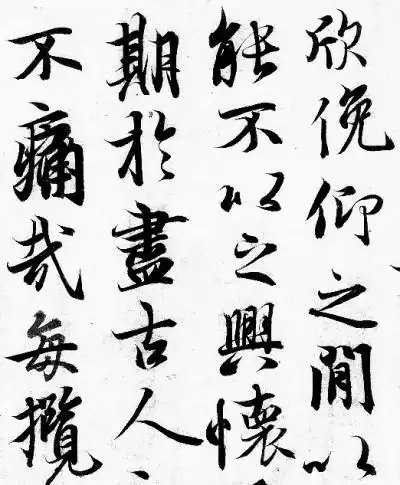 欣俛仰之間以
能不以之興懷
期於盡古人
不痛哉每攬